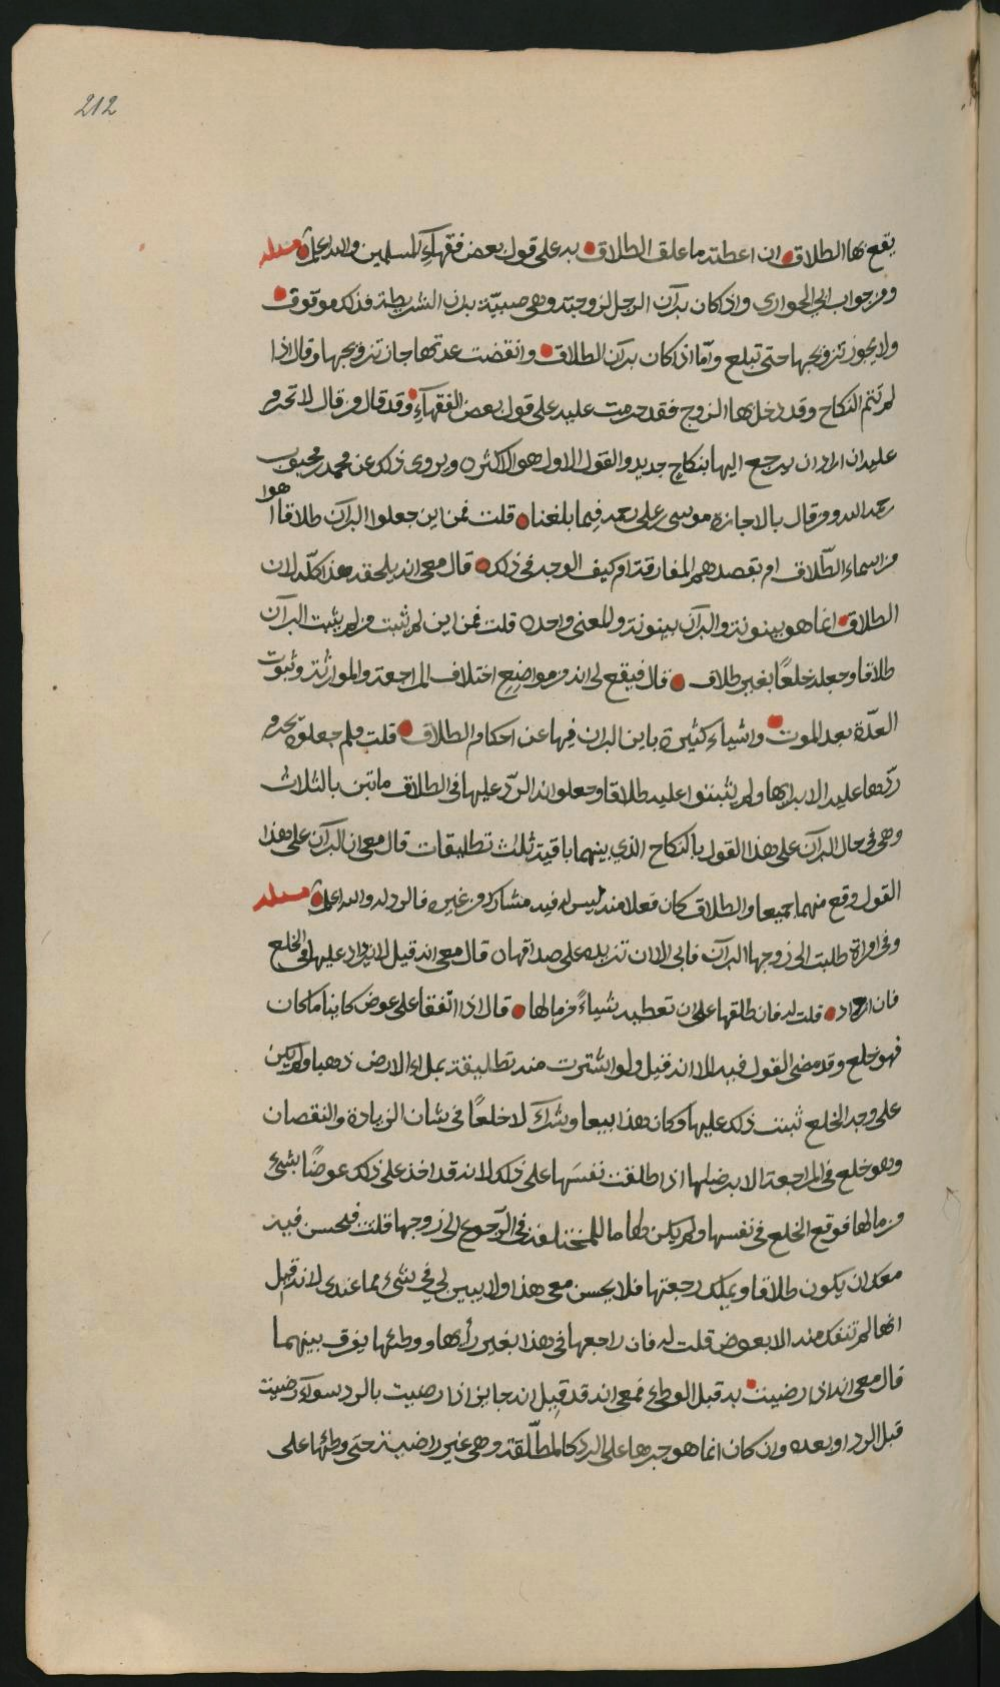 212
يقع بها الطلاق ان اعطته ما علق الطلاق به على قول بعض فقهآء المسلمين والله اعلم مسئله
ومن جواب ابي الحواري واذا كان برآن الرجل لزوجته وهي صبيّة بهذه الشريطة فذلك موقوف
ولا يجوز تزويجها حتى تبلغ وامّا اذا كان برآن الطلاق وانقضت عدتها جاز تزويجها وقال اذا
لم تتم النكاح وقد دخل بها الزوج فقد حرمت عليه على قول بعض الفقهآء وقد قال من قال لا تحرم
عليه ان اراد ان يرجع اليها بنكاح جديد والقول الاول هو الاكثر ويروى ذلك عن محمد بن محبوب
رحمه الله ومن قال بالاجازة موسى بن علي رحمه الله فيما بلغنا قلت فمن اين جعلوا البرآن طلاقا اهو
من اسماء الطّلاق ام بقصدهم المفارقة ام كيف الوجه في ذلك قال معي انه يلحقه هذا كلّه لان
الطلاق انما هو بينونة والبرآن بينونة والمعنى واحد قلت فمن اين لم يثبت من لم يثبت البرآن
طلاقا وجعله خلعًا بغير طلاق قال فيقع لي انه من مواضع اختلاف المراجعة والموارثة وثبوت
العدّة بعد الموت واشياء كثيرة باين البرآن فيها عن احكام الطلاق قلت فلم جعلوه يحرم
ردّها عليه الا برايها ولم يثبتوا عليه طلاقا وجعلوا له الردّ عليها في الطلاق ما تبن بالثلاث
وهي في حال البرآن على هذا القول بالنكاح الذي بينهما باقية ثلث تطليقات قال معي ان البرآن على هذا
القول وقع منهما جميعا والطلاق كان فعلا منه ليس له فيه مشارك من غيره فالرد له والله اعلم مسئله
وفي امراة طلبت الى زوجها البرآن فابى الا ان تزيده على صداقها قال معي انه قيل لا يزداد عليها في الخلع
فان ازداد قلت له فان طلقها على ان تعطيه شياءً من مالها قال اذا اتفقا على عوض كاينا ما كان
فهو خلع وقد مضى القول فيه الا انه قيل ولو اشترت منه تطليقة بملاء الارض ذهبا ولم يكن
على وجه الخلع ثبت ذلك عليها وكان هذا بيعا وشراء لا خلعًا في شان الزيادة والنقصان
وهو خلع في المراجعة الا برضاها اذا طلقت نفسَها على ذلك لانه قد اخذ على ذلك عوضًا بشئ
من مالها فوقع الخلع في نفسها ولم يكن لها ما للمختلفة في الرّجوع الى زوجها قلت فيحسن فيه
معك ان يكون طلاقا ويملك رجعتها فلا يحسن معي هذا ولا يبين لي في شئ مما عندي لانه قيل
انها لم تنفك منه الا بعوض قلت له فان راجعها في هذا بغير رأيها ووطئها يفرق بينهما
قال معي انه اذا رضيت به قبل الوطئ فمعي انه قد قيل انه جايز اذا رضيت بالرد سوآء رضيت
قبل الرد او بعده وان كان انما هو جبرها على الرد كالمطلّقة وهي غير راضية حتى وطئها على